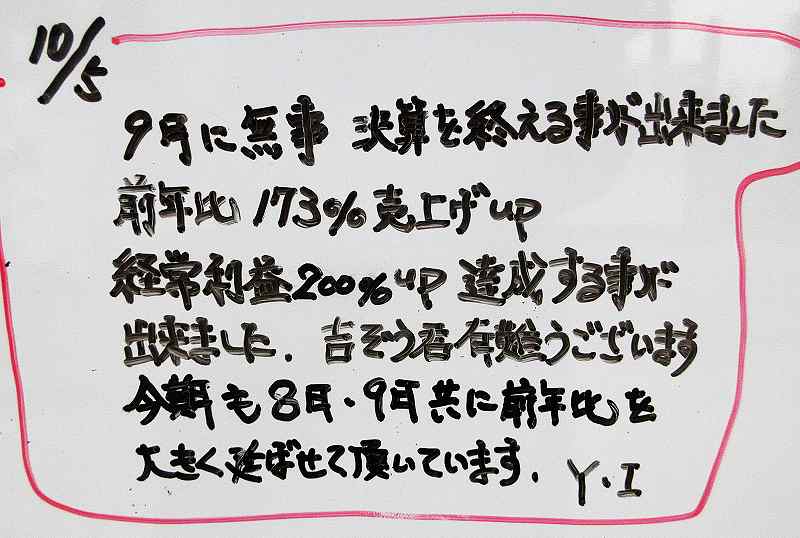 10/5
9月に無事 決算を終える事が出来ました
前年比 173%売上げup
経常利益200%up 達成する事が
出来ました. 吉ぞう君有難うございます
今期も8月・9月共に前年比を
大きく延ばせて頂いています.
Y・I